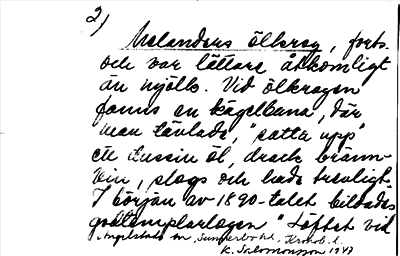 2)
Melanders ölkrog, forts.
och var lättare åtkomligt
än mjölk. Vid ölkrogen
fanns en kägelbana, där
man tävlade, "satta upp"
ett dussin öl, drack bränn-
vin, slogs och hade trevligt.
I början av 1890-talet bildades
godtemplarlogen "Löftet vid
Ängelstads sn, Sunnerbo hd. Kronob. l.
K. Salomonsson 1947